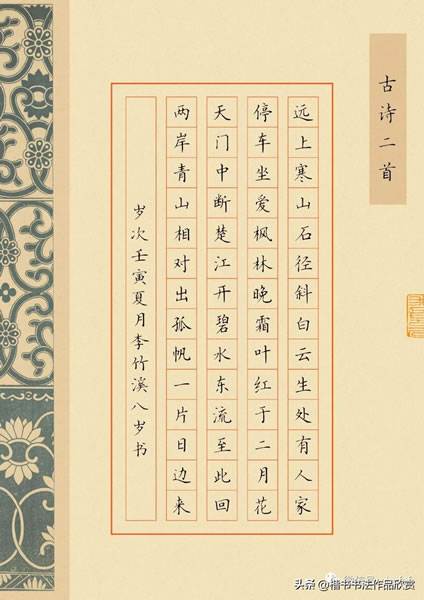 古诗二首
远上寒山石径斜白云生处有人家
停车坐爱枫林晚霜叶红于二月花
天门中断楚江开碧水东流至此回
两岸青山相对出孤帆一片日边来
岁次壬寅夏月李竹溪八岁书
头条 @楷书书法作品欣赏